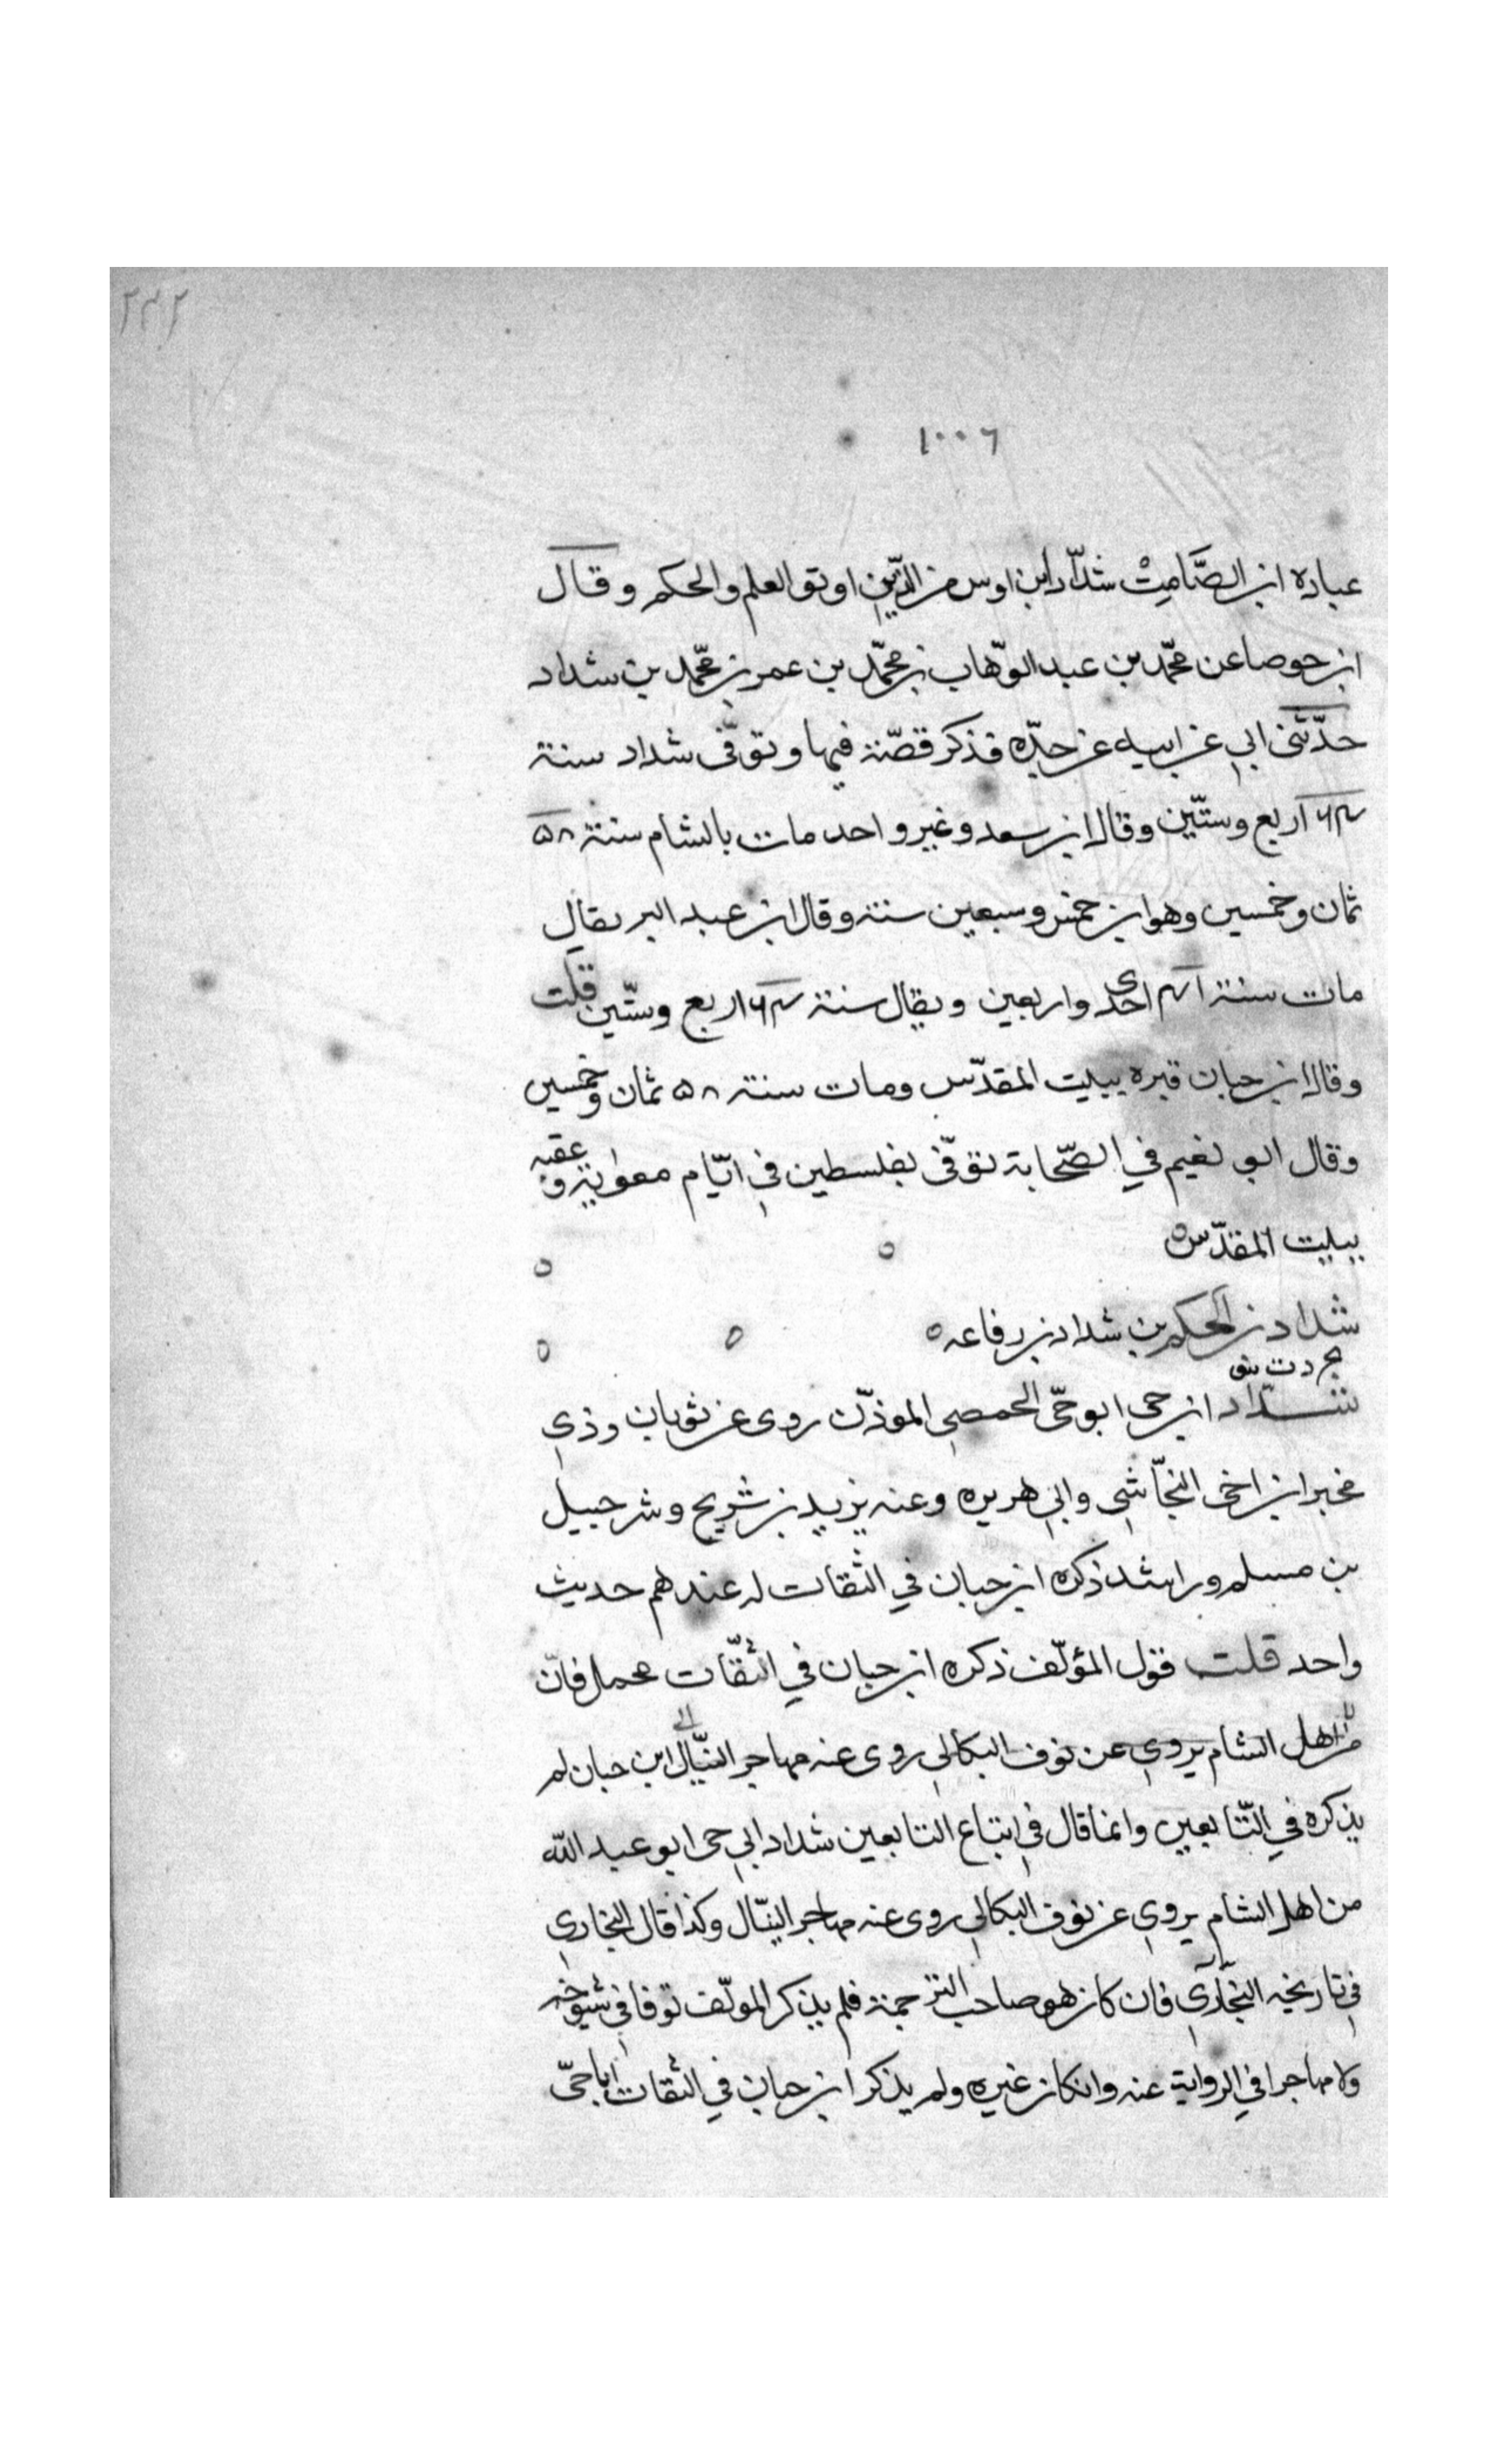 ٢٣٢
١٠٠٦
عباده ابن الصَّامِتْ شدّاد ابن اوس من الذّين اوتو العلم والحكم وقال
ابن حوصا عن محمّد بن عبد الوّهاب بن محمّد بن عمر بن محمّد بن شداد
حدّثنى ابي عن ابيه عن جدّه فذكر قصّة فيها وتوفّى شداد سنة
٦٤ اربع وستّين وقال ابن سعد وغير واحد مات بالشام سنة ٥٨
ثمان وخمسين وهو ابن خمس وسبعين سنة وقال ابن عبد البر يقال
مات سنة ٤١ احدى واربعين ويقال سنة ٦٤ اربع وستّين قلت
وقال ابن حبان قبره ببيت المقدّس ومات سنة ٥٨ ثمان وخمسين
وقال ابو نعيم في الصّحابة توفّى بفلسطين في ايّام معوية وعقبه
ببيت المقدّس ٥ ٥ ٥
شداد بن الحكم بن شداد بن رفاعه ٥ ٥ ٥
بخ د ت ق
شدّاد ابن حى ابو حىّ الحمصي الموذّن روى عن ثوبان وذي
مخبر ابن اخى النجّاشي وابي هريره وعنه يزيد بن شريح وشرحبيل
بن مسلم وراشد ذكره ابن حبان في الثقات له عندهم حديث
واحد قلت فقول المؤلّف ذكره ابن حبان في الثقّات محمل فانّ
من اهل الشام يروي عن نوف البكالي روى عنه مهاجر النبّال ابن حبان لم
يذكره في التّابعين وانما قال في اتباع التابعين شداد ابي حى ابو عبد الله
من اهل الشام يروي عن نوف البكالي روى عنه مهاجر النبّال وكذا قال البخاري
في تاريخه البخاري فان كان هو صاحب الترجمة فلم يذكر المولّف نوفا في شيوخه
ولا مهاجرا في الرواية عنه وانكان غيره ولم يذكر ابن حبان في الثقات اباحىّ